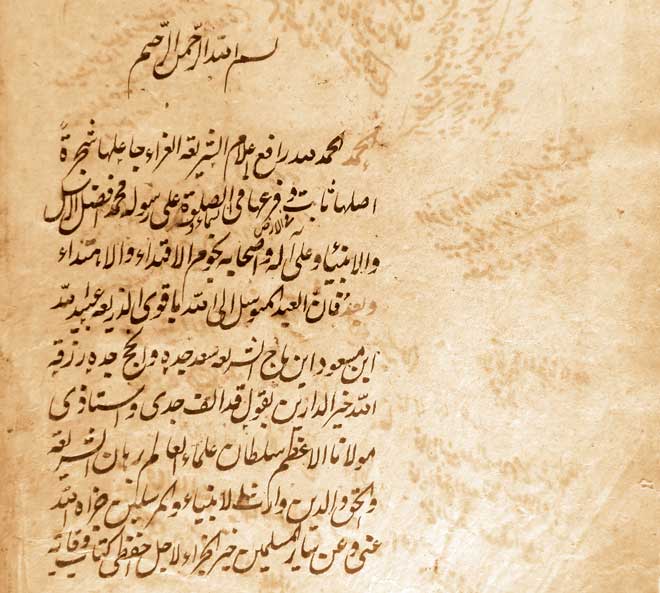 بسم الله الرحمن الرحيم
الحمد الحمد لله رافع اعلام الشريعة الغراء جاعلها شجرة
اصلها ثابت و فرعها فى السماء و الصلوة على رسوله محمد افضل الرسل
والانبياء وعلى آله واصحابه نجوم الاقتداء والاهتداء
وبعد فان العبد المتوسل الى الله باقوى الذريعه عبيد الله
ابن مسعود ابن تاج الشريعه سعد جده وانجح جده رزقه
الله خير الدارين يقول قد الف جدى و استاذى
مولانا الاعظم سلطان علماء العالم برهان الشريعة
والحق والدين وارث الانبياء والمرسلين جزاه الله
عنى وعن سائر المسلمين خير الجزاء لاجل حفظى كتاب وقاية